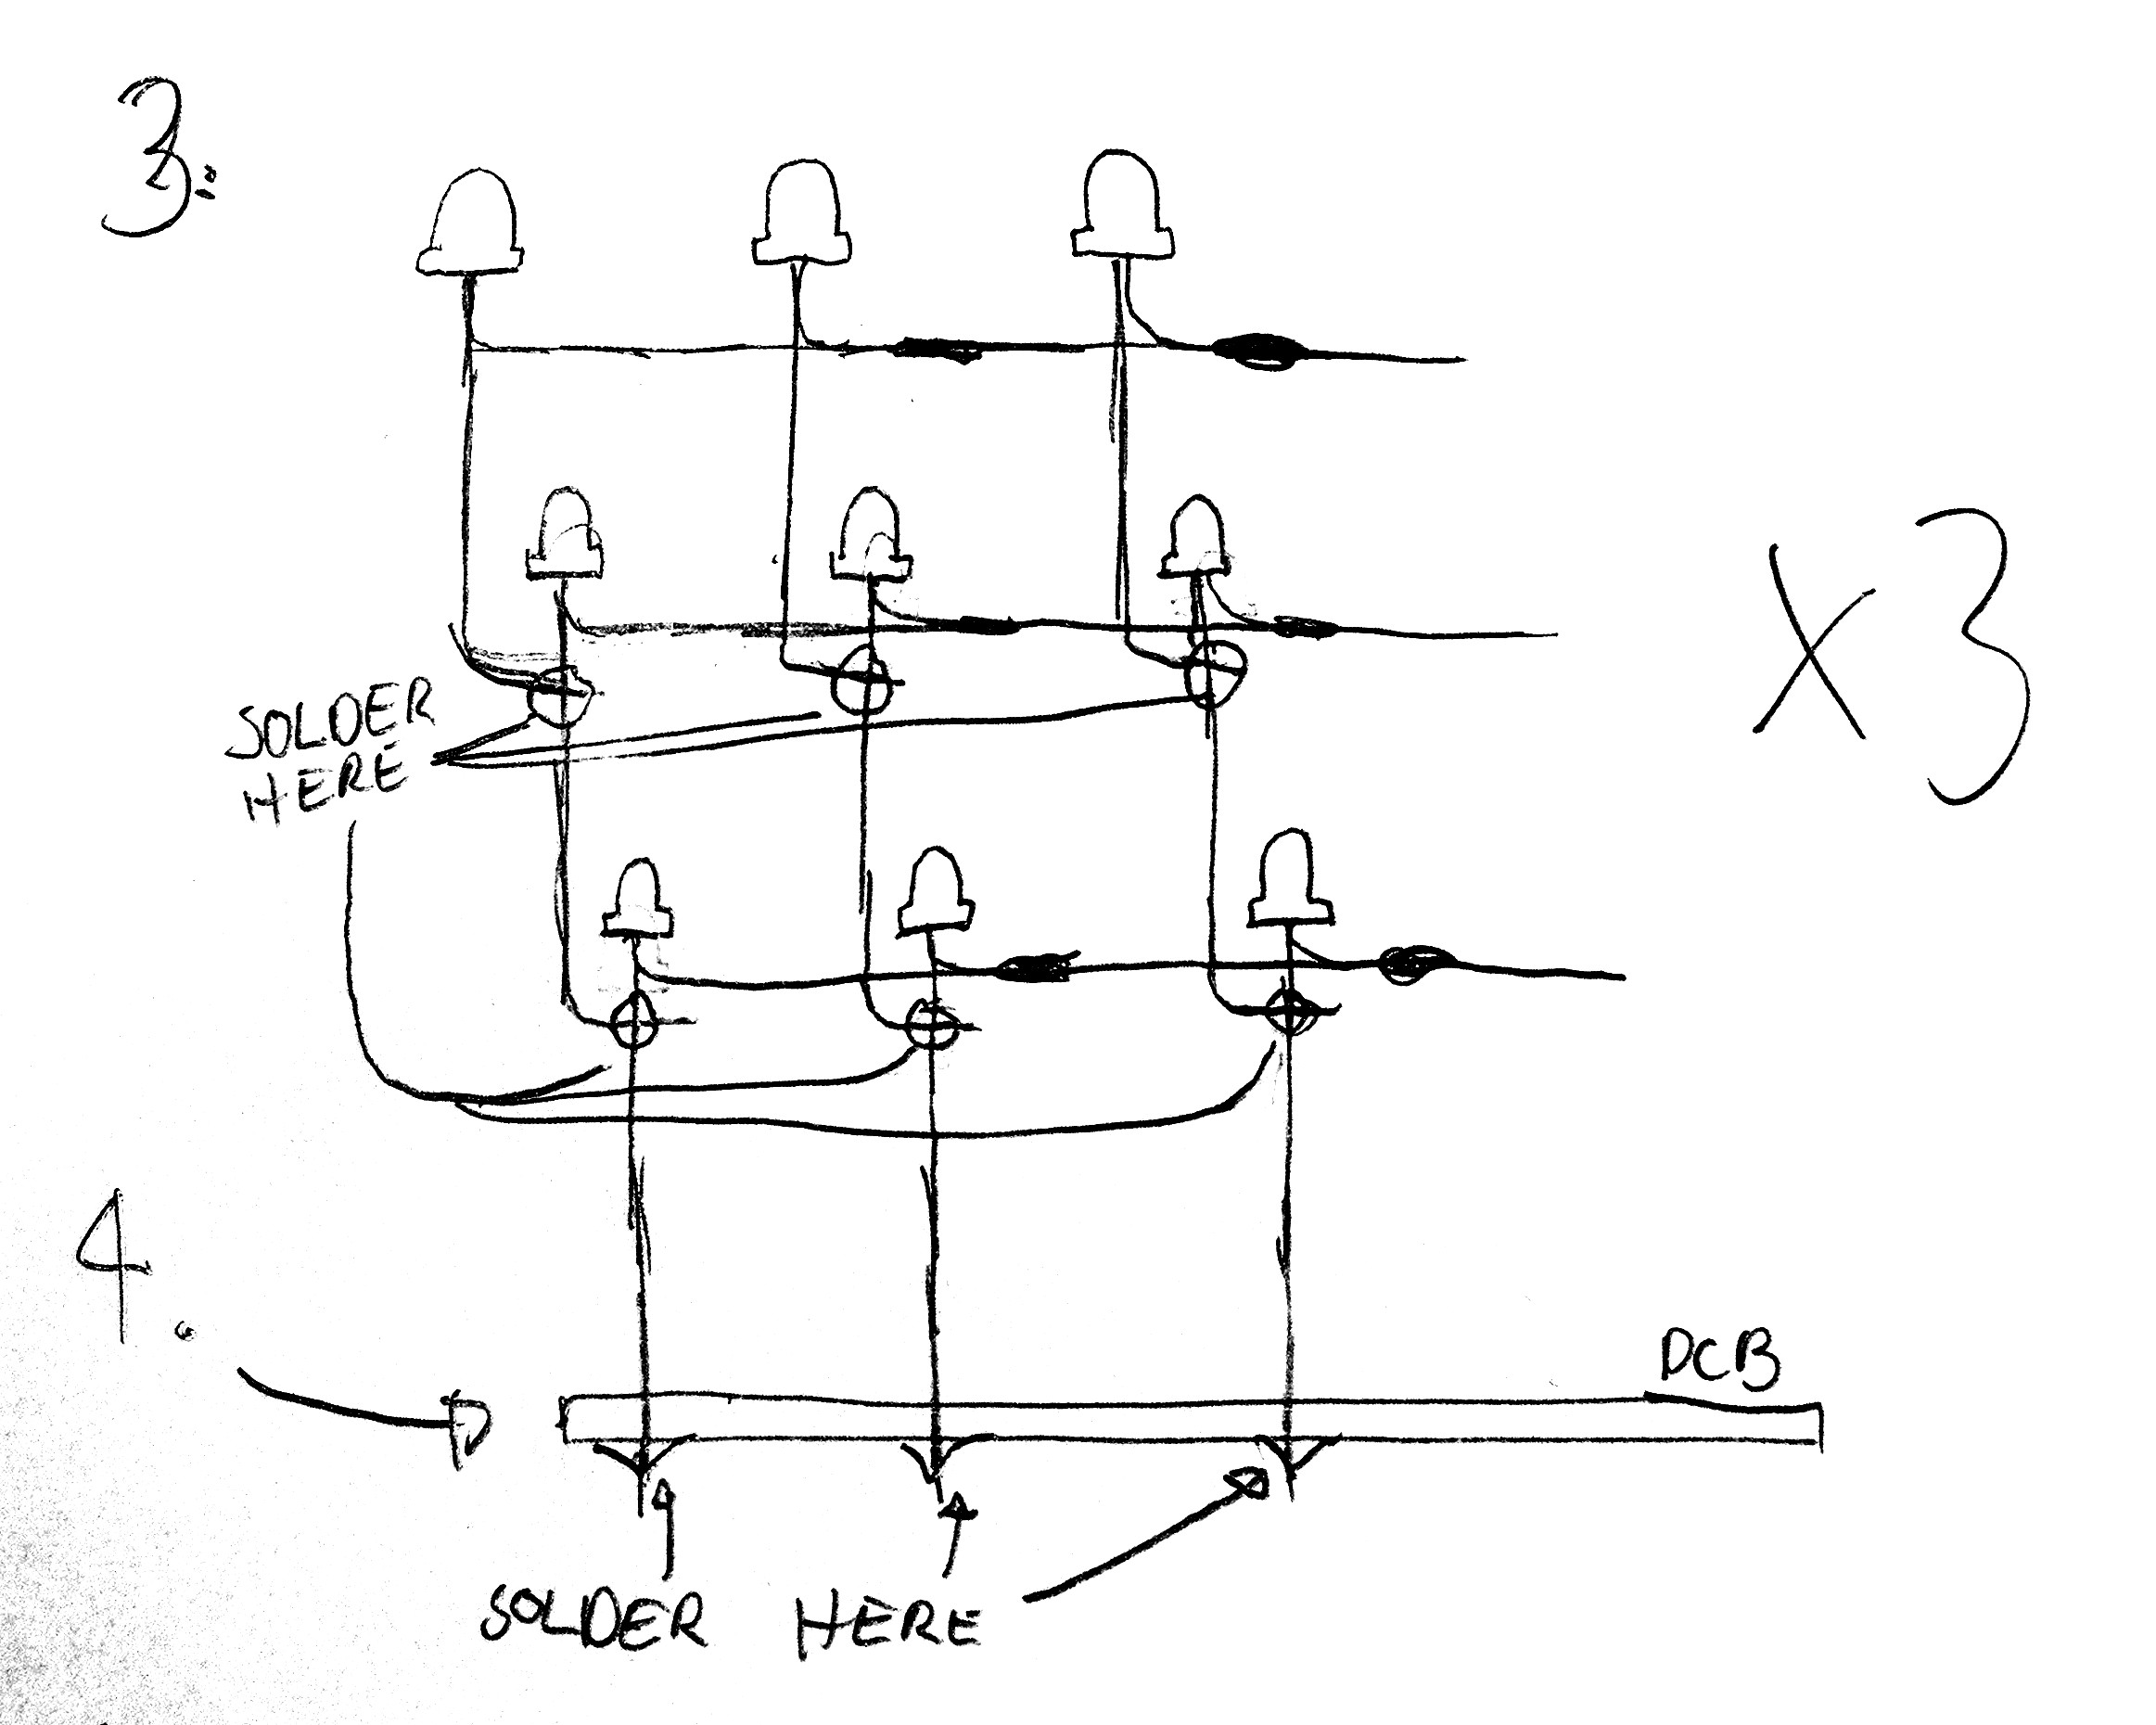 3:
X3
SOLDER
HERE
4.
DCB
SOLDER HERE